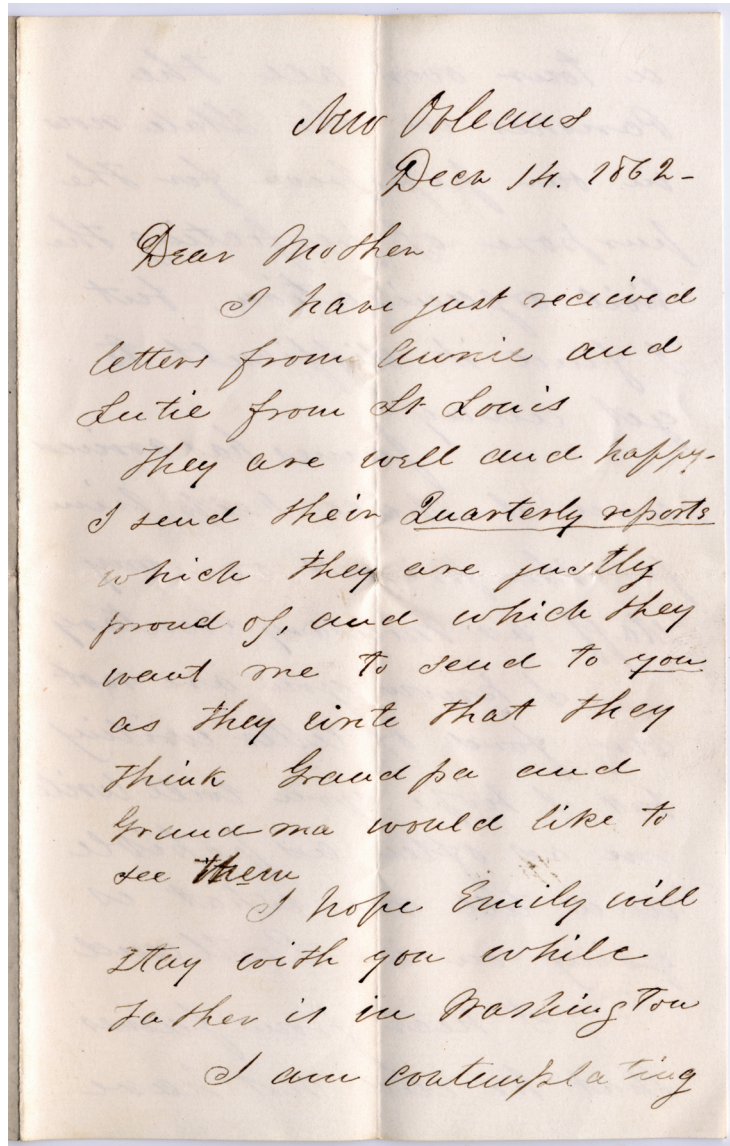 New Orleans
Decr 14. 1862-
Dear Mother
I have just recieved
letters from Annie and
Lutie from St Louis
They are well and happy-
I send their Quarterly reports
which they are justly
proud of, and which they
want me to send to you
as they write that they
think Grandpa and
Grandma would like to
see them
I hope Emily will
stay with you while
Father is in Washington
I am contemplating